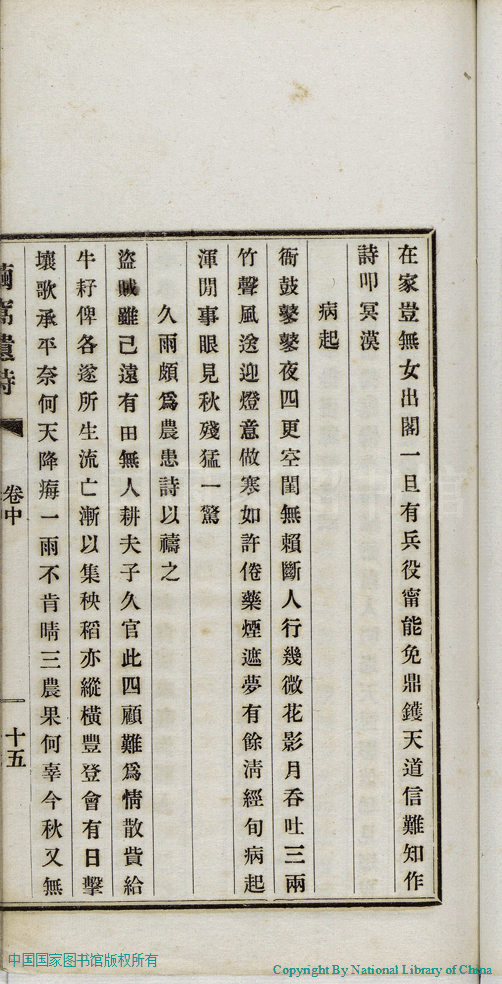 在家豈無女出閣一旦有兵役甯能免鼎鑊天道信難知作
詩叩冥漠
病起
衙鼓鼕鼕夜四更空閨無賴斷人行幾微花影月吞吐三兩
竹聲風送迎燈意做寒如許倦藥煙遮夢有餘淸經旬病起
渾閒事眼見秋殘猛一驚
久雨頗爲農患詩以禱之
盜賊雖已遠有田無人耕夫子久官此四顧難爲情散貲給
牛耔俾各遂所生流亡漸以集秧稻亦縱橫豐登會有日擊
壤歌承平奈何天降痗一雨不肯晴三農果何辜今秋又無
窩遺詩
卷中
十五
中国国家图书馆版权所有
Copyright By National Library of China